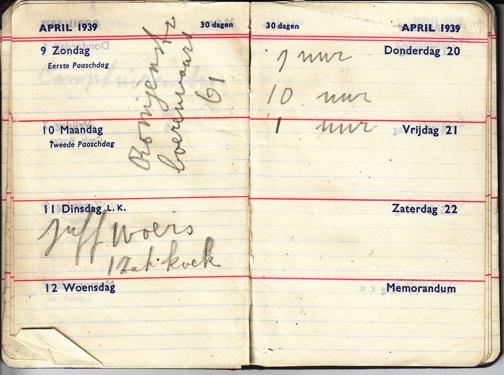 APRIL 1939 30 dagen
9 Zondag
Eerste Paaschdag
boerenvaart
61
10 Maandag
Tweede Paaschdag
11 Dinsdag L.K.
juff Woers
1 zak koek
12 Woensdag
30 dagen APRIL 1939
Donderdag 20
1 uur
10 uur
Vrijdag 21
1 uur
Zaterdag 22
Memorandum